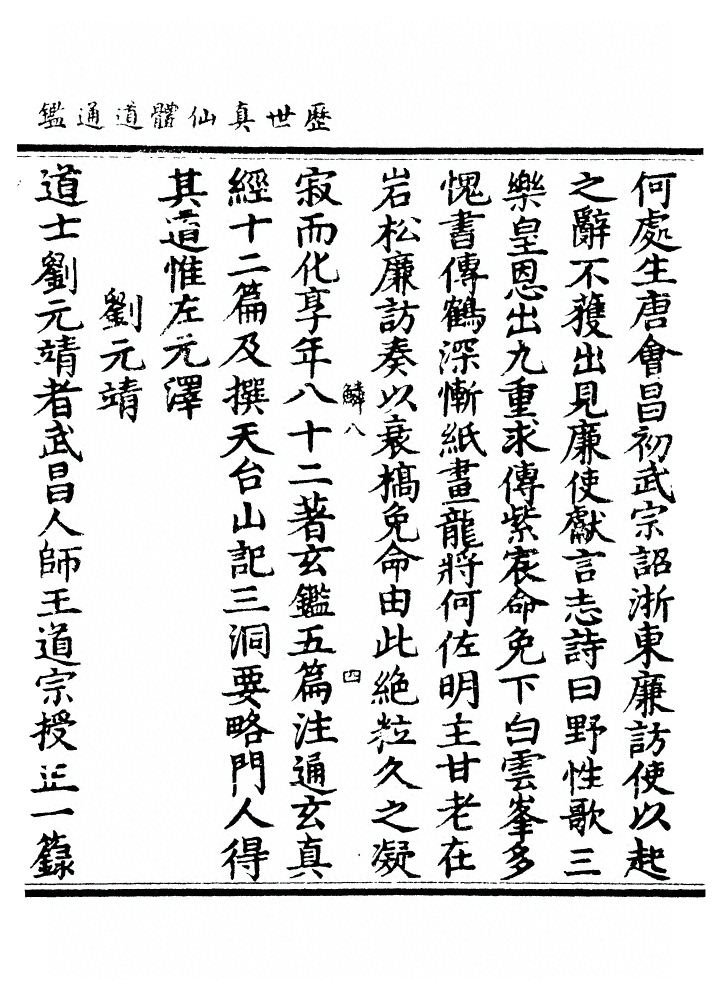 歷世真仙體道通鑑
何處生唐會昌初武宗詔浙東廉訪使以起
之辭不獲出見廉使獻言志詩曰野性歌三
樂皇恩出九重求傳紫宸命免下白雲峯多
愧書傳鶴深慚紙畫龍將何佐明主甘老在
岩松廉訪奏以衰槁免命由此絕粒久之凝
鱗八
四
寂而化享年八十二著玄鑑五篇注通玄真
經十二篇及撰天台山記三洞要略門人得
其道惟左元澤
劉元靖
道士劉元靖者武昌人師王道宗授正一籙